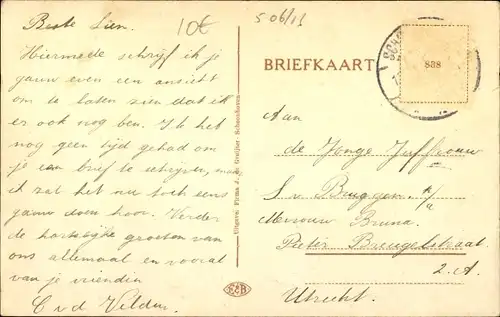 Beste Lien.
Hiermede schrijf ik je
gauw even een ansicht
om te laten zien dat ik
er ook nog ben. Ik heb het
nog geen tijd gehad om
je een brief te schrijven, maar
ik zal het nu toch eens
gauw doen hoor. Verder
de hartelijke groeten van
ons allemaal en vooral
van je vriendin
C v d Velden.
10€
506/11
Uitgave: Firma J. de Greijter, Schoonhoven
BRIEFKAART
838
Aan
de Jonge Juffrouw
L. v. Bruggen
Mevrouw Bruna.
Pieter Breugelstraat
2. A.
Utrecht.